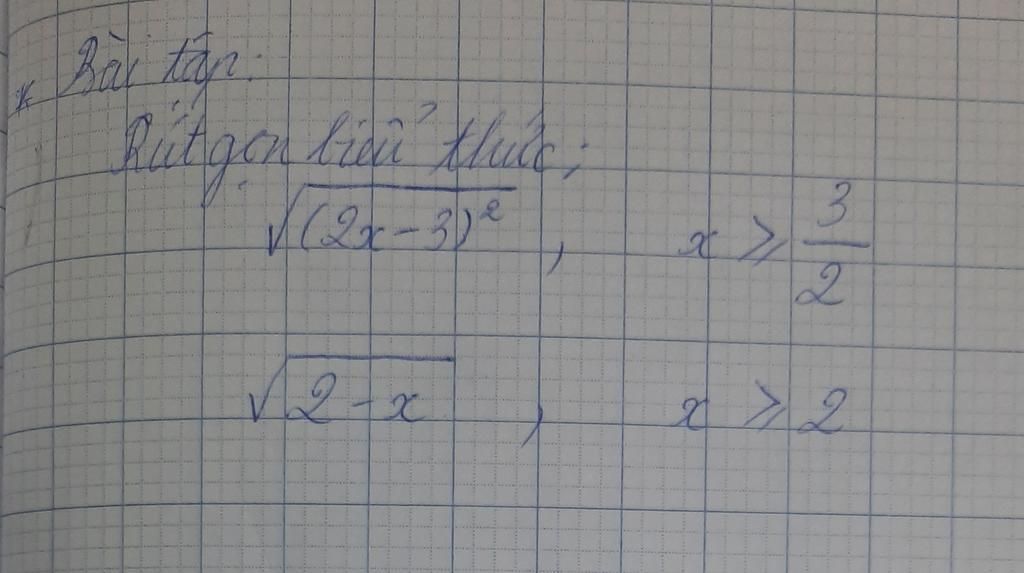 * Bài tập:
Rút gọn biểu thức:
√(2x-3)² , x ≥ 3/2
√2-x , x ≥ 2